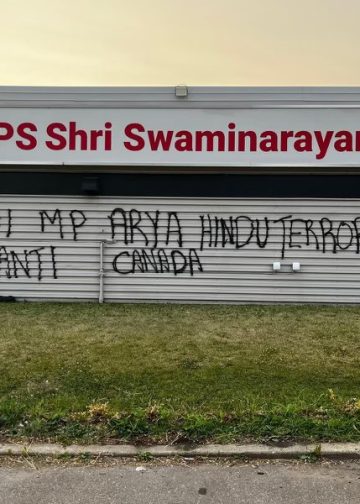 PS Shri Swaminarayan
I MP ARYA HINDU TERROR
ANTI CANADA